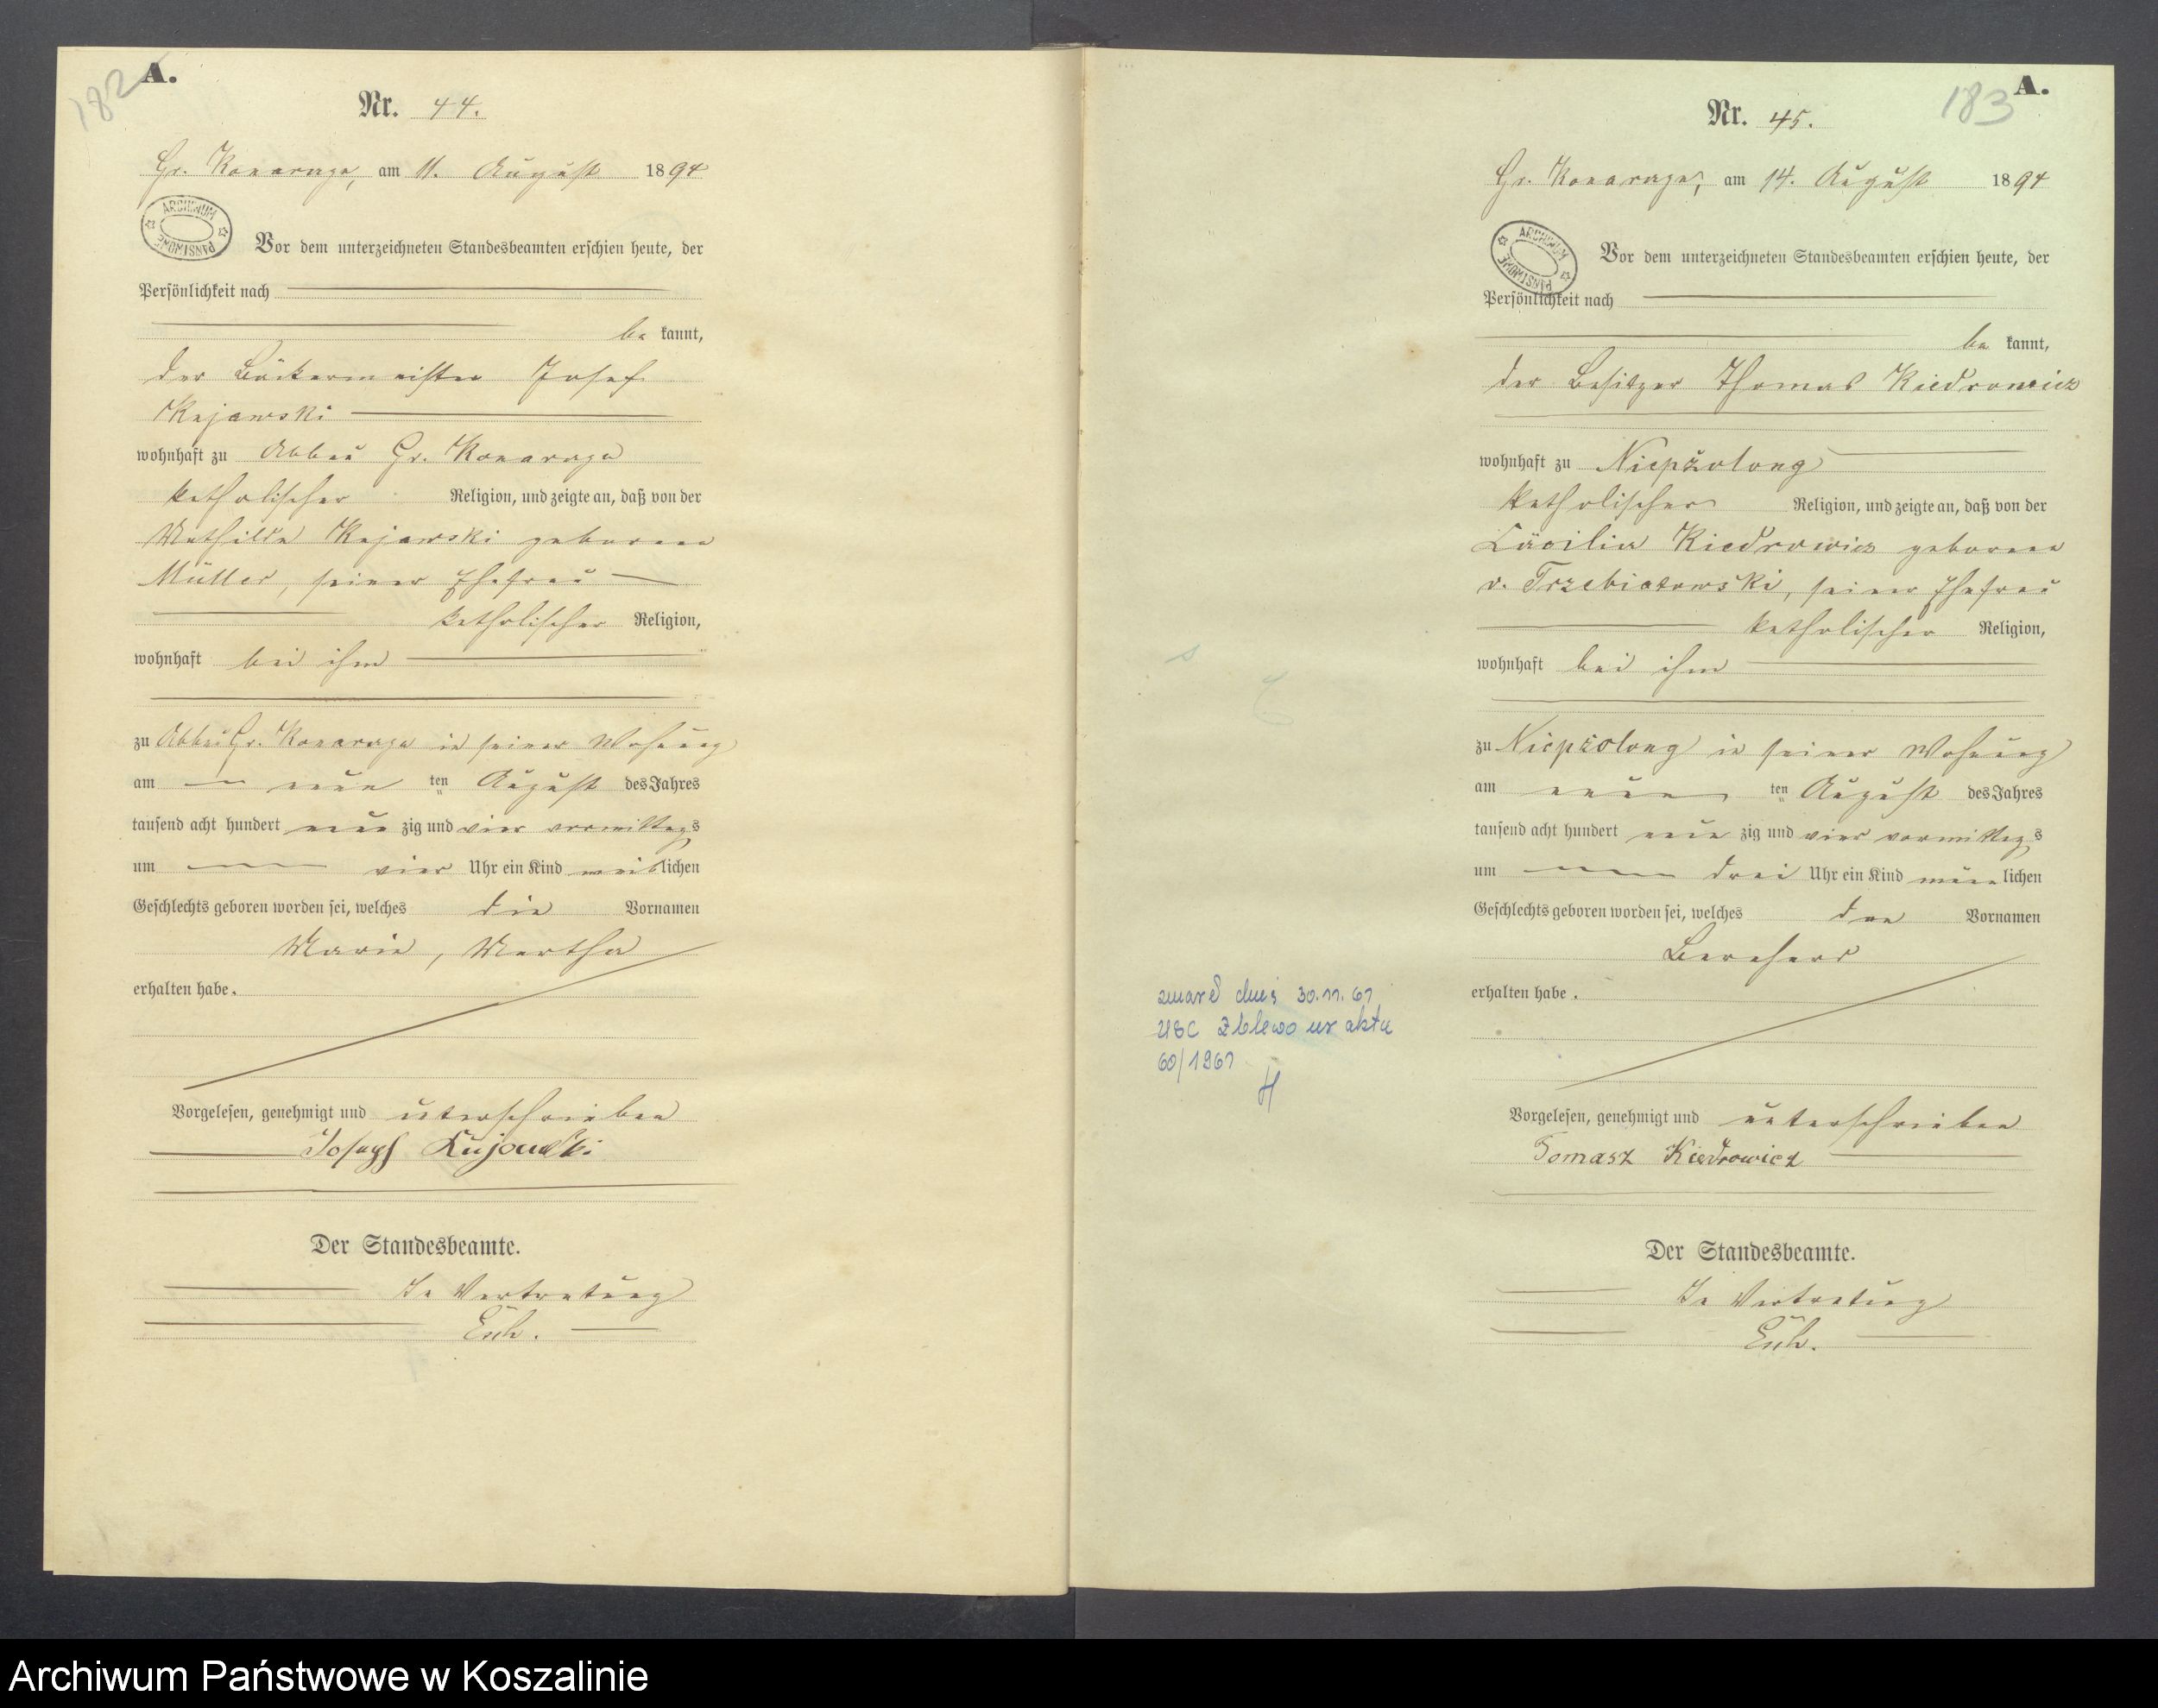 182
A.
Nr. 44.
Gr. Konarczyn, am 11. August 1894
ARCHIWUM PAŃSTWOWE
Vor dem unterzeichneten Standesbeamten erschien heute, der
Persönlichkeit nach
be kannt,
der Bäckermeister Josef
Kujawski
wohnhaft zu Abbau Gr. Konarczyn
katholischer Religion, und zeigte an, daß von der
Mathilde Kujawski geborene
Müller, seiner Ehefrau
katholischer Religion,
wohnhaft bei ihm
zu Abbau Gr. Konarczyn in seiner Wohnung
am neun ten August des Jahres
tausend acht hundert neun zig und vier vormittags
um vier Uhr ein Kind weiblichen
Geschlechts geboren worden sei, welches die Vornamen
Marie, Martha
erhalten habe.
Vorgelesen, genehmigt und unterschrieben
Joseph Kujawski
Der Standesbeamte.
In Vertretung
183
A.
Nr. 45.
Gr. Konarczyn, am 14. August 1894
ARCHIWUM PAŃSTWOWE
Vor dem unterzeichneten Standesbeamten erschien heute, der
Persönlichkeit nach
be kannt,
der Besitzer Thomas Kiedrowicz
wohnhaft zu Niepszolong
katholischer Religion, und zeigte an, daß von der
Cäcilia Kiedrowicz geborene
v. Trzebiatowski, seiner Ehefrau
katholischer Religion,
wohnhaft bei ihm
zu Niepszolong in seiner Wohnung
am neun ten August des Jahres
tausend acht hundert neun zig und vier vormittags
um drei Uhr ein Kind männlichen
Geschlechts geboren worden sei, welches den Vornamen
Bernhard
erhalten habe.
zmarł dnia 30.11.61
USC Zblewo nr aktu
60/1961
Vorgelesen, genehmigt und unterschrieben
Tomasz Kiedrowicz
Der Standesbeamte.
In Vertretung
Archiwum Państwowe w Koszalinie